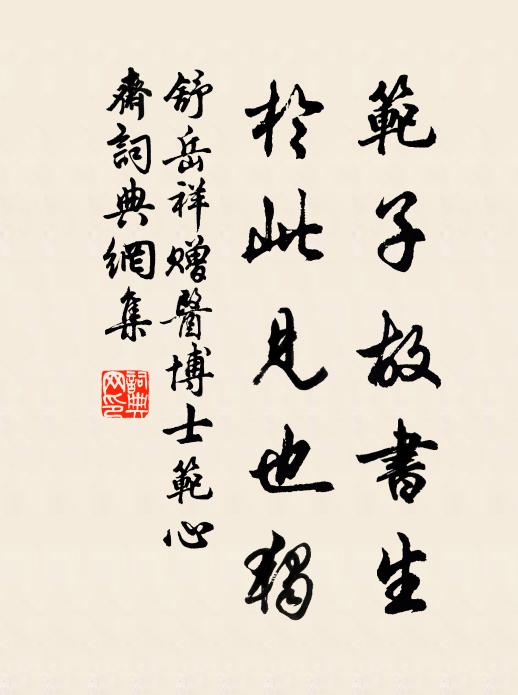 範子故書生
於此見也獨
舒岳祥贈醫博士範心
齋詞典網集
詞典
网印